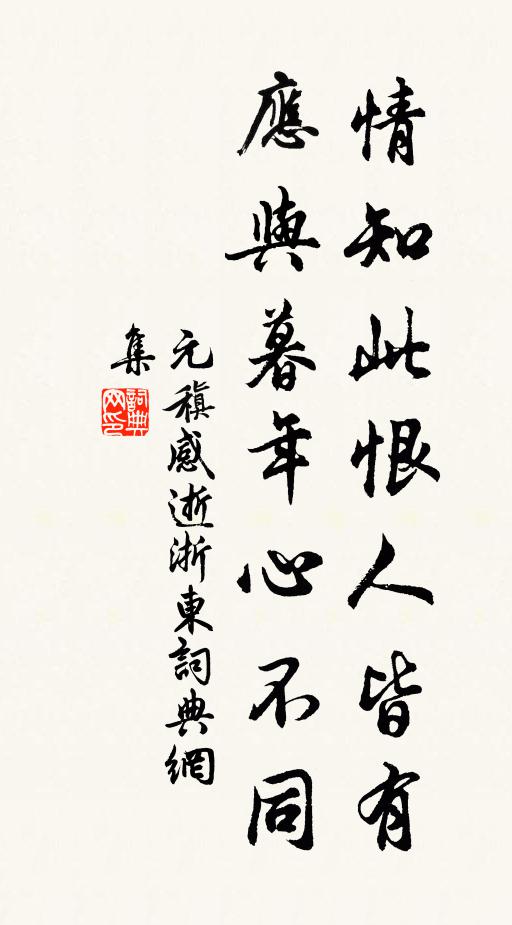 情知此恨人皆有
應與暮年心不同
元稹感逝浙東詞典網
集
詞典
网印